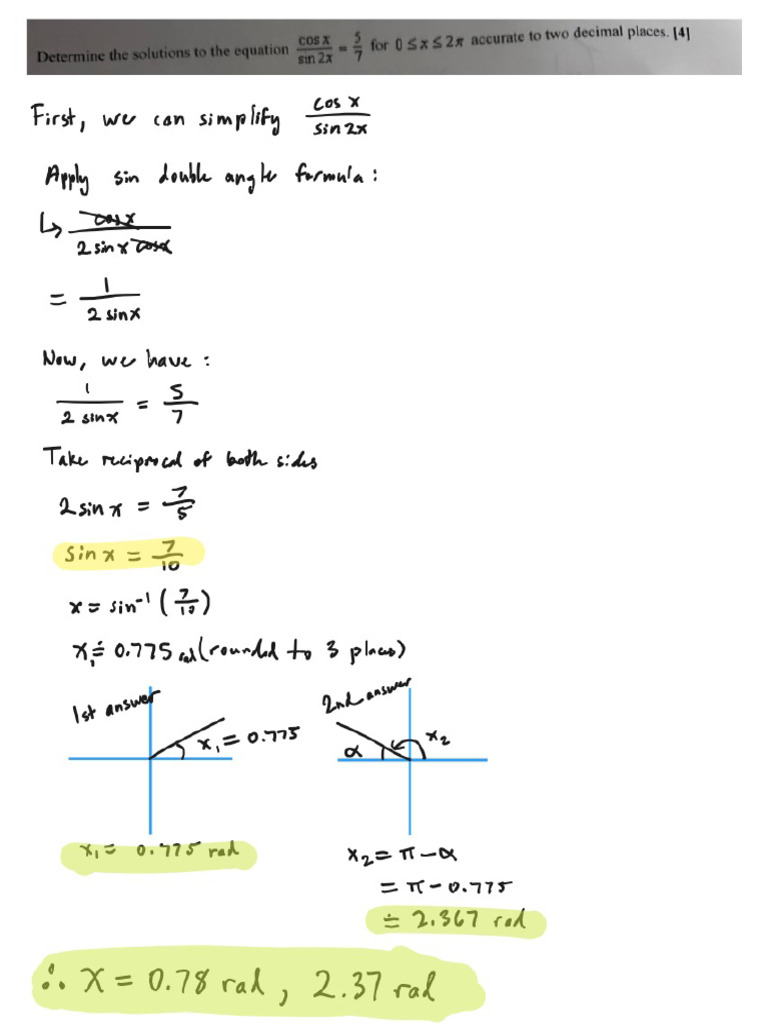 Determine the solutions to the equation cos x / sin 2x = 5/7 for 0 ≤ x ≤ 2π accurate to two decimal places. [4]
First, we can simplify cos x / sin 2x
Apply sin double angle formula:
↳ cos x / 2 sin x cos x
= 1 / 2 sin x
Now, we have:
1 / 2 sin x = 5/7
Take reciprocal of both sides
2 sin x = 7/5
sin x = 7/10
x = sin⁻¹ (7/10)
x₁ ≐ 0.775 rad (rounded to 3 places)
1st answer
x₁ = 0.775
2nd answer
α
x₂
x₁ = 0.775 rad
x₂ = π - α
= π - 0.775
≐ 2.367 rad
∴ x = 0.78 rad, 2.37 rad